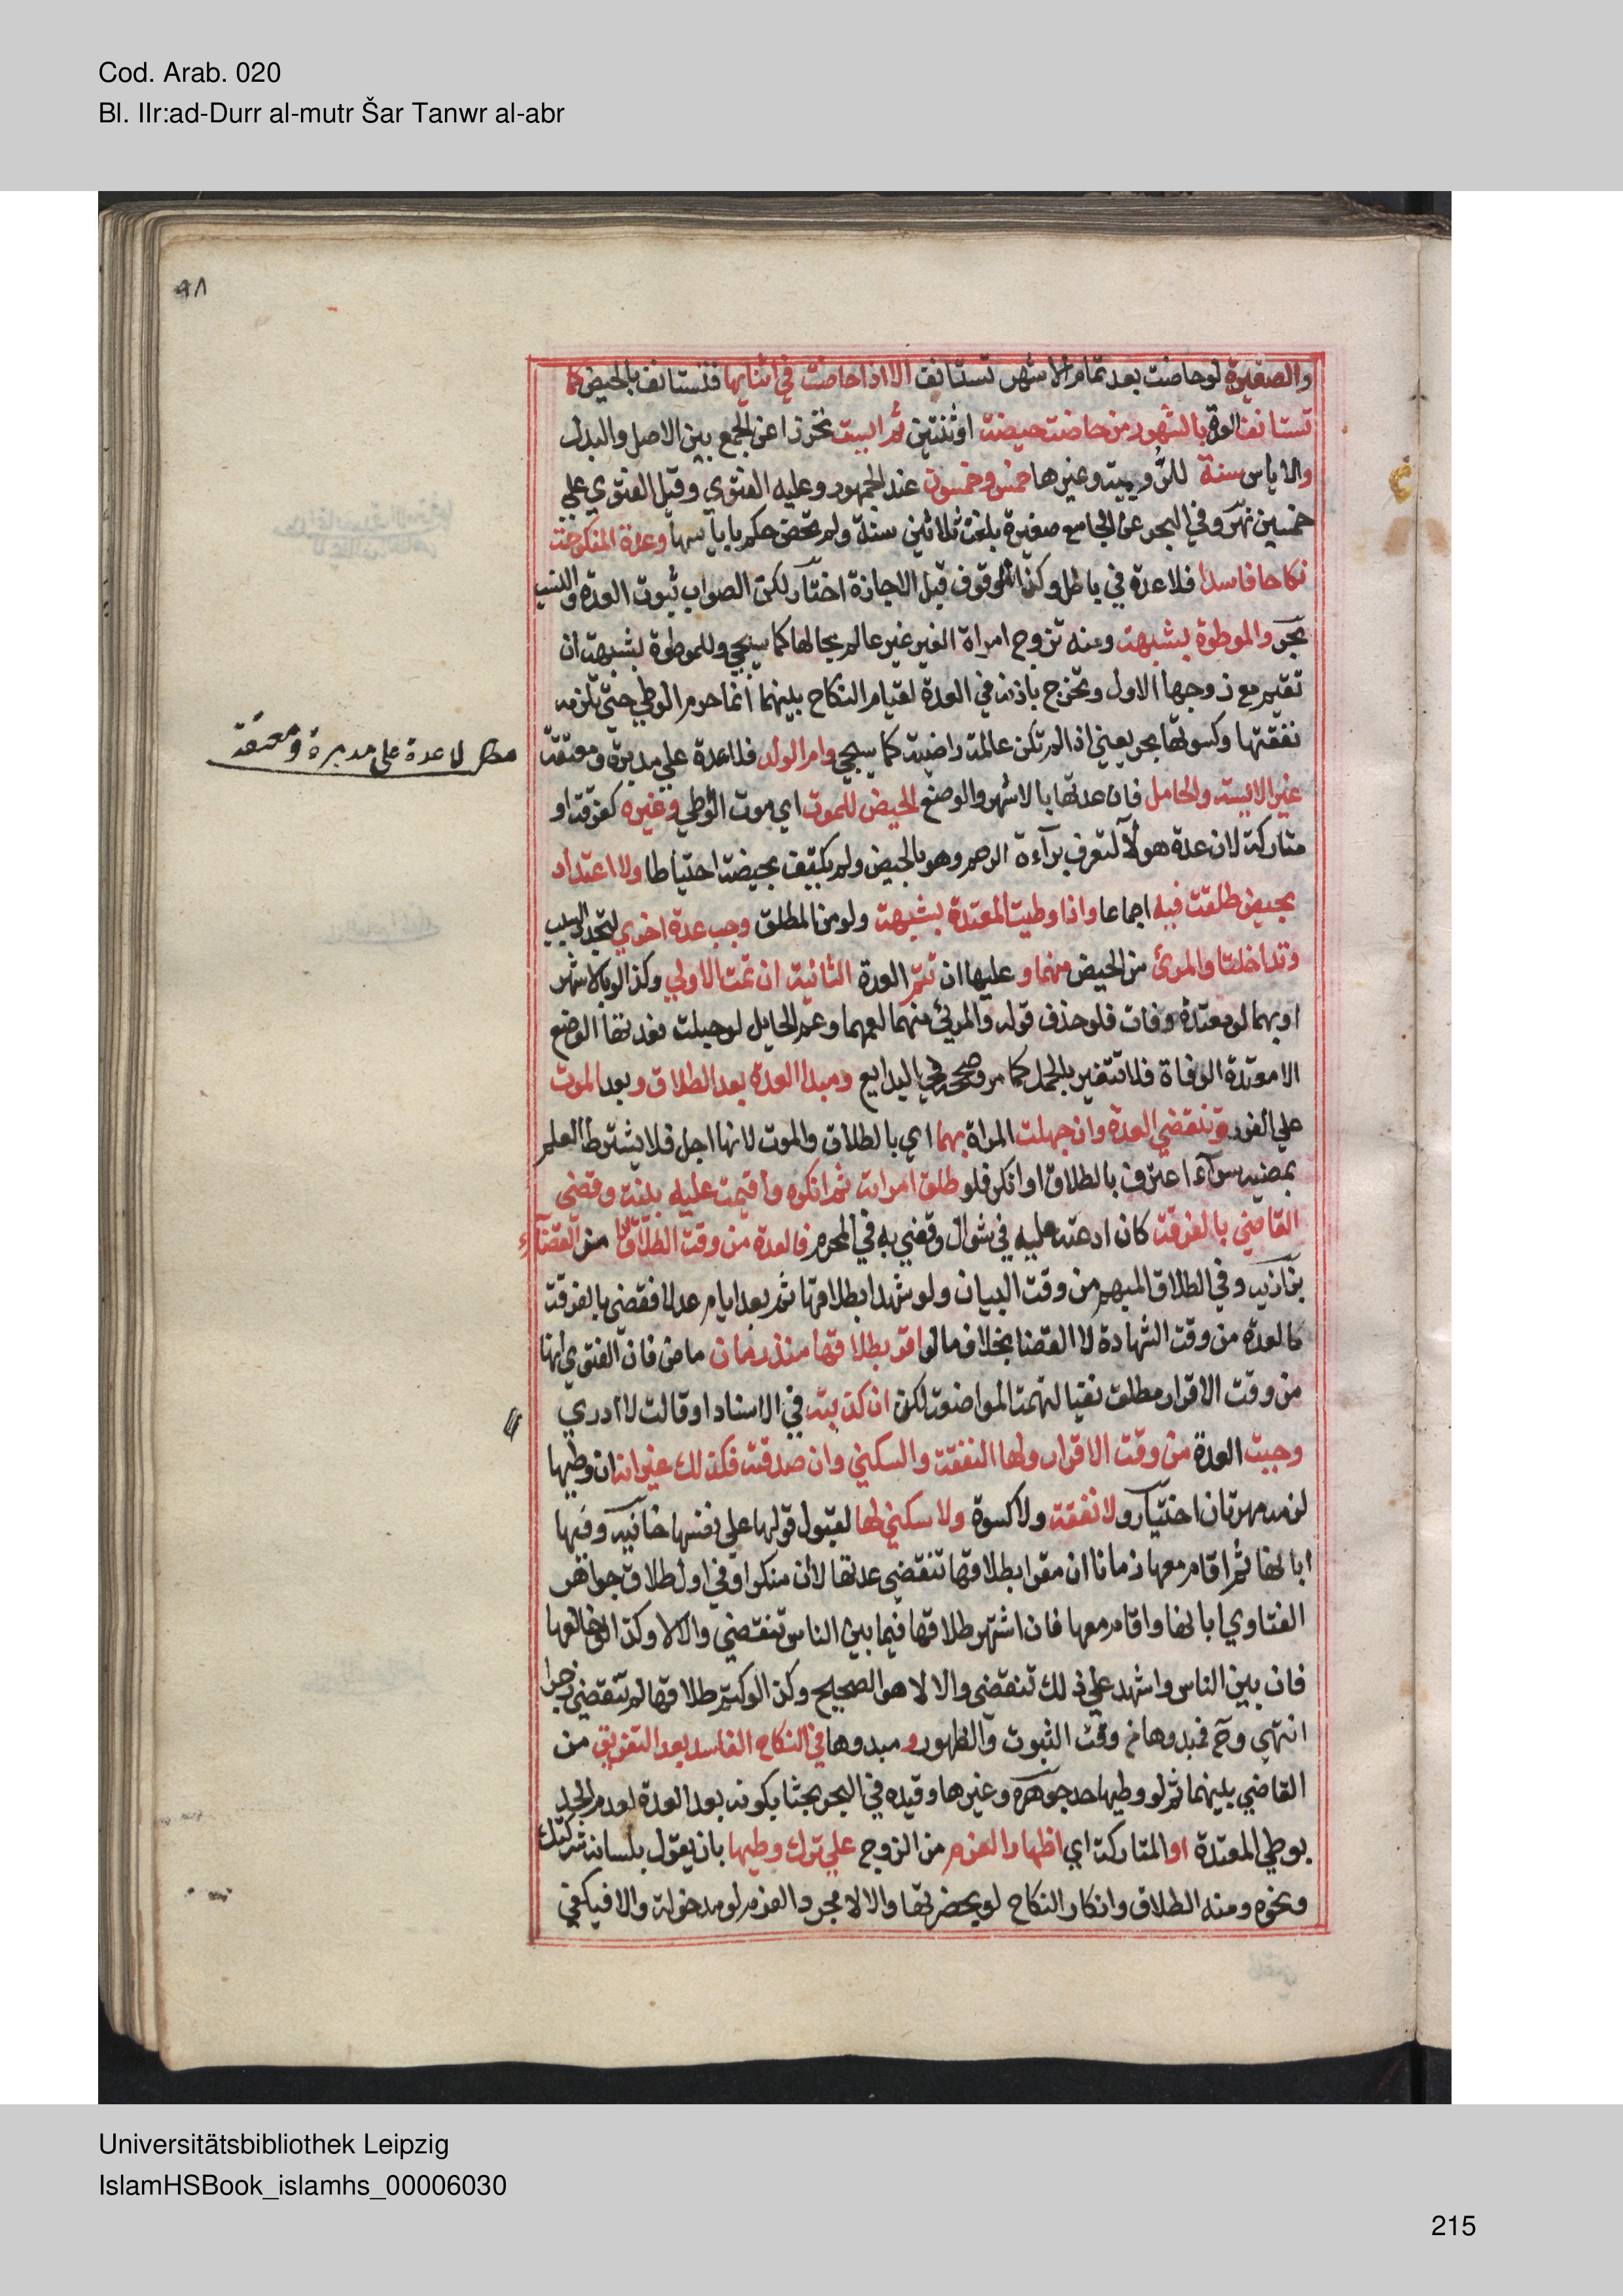 Cod. Arab. 020
Bl. IIr:ad-Durr al-mutr Šar Tanwr al-abr
٩٨
والصغيرة لوحاضت بعد تمام الاشهر تستانف الا اذا حاضت في اثنايها فتستانف بالحيض كما
تستانف العدة بالشهور من حاضت حيضة اوثنتين ثم ايست تحرزا عن الجمع بين الاصل والبدل
والاياس سنة للرومية وغيرها خمس وخمسون عند الجمهور وعليه الفتوي وقيل الفتوي علي
خمسين نهر وفي البحر عن الجامع صغيرة بلغت ثلاثين سنة ولم تحض حكم باياسها وعدة المنكوحة
نكاحا فاسدا فلا عدة في باطل وكذا الموقوف قبل الاجازة اختيار لكن الصواب ثبوت العدة والنسب
بحر والموطوة بشبهة ومنه تزوج امراة الغير غير عالم بحالها كما سيجي وللموطوة بشبهة ان
تقيم مع زوجها الاول وتخرج باذنه في العدة لقيام النكاح بينهما انما حرم الوطي حتي تلزمه
نفقتها وكسوتها بحر يعني اذا لم تكن عالمة راضية كما سيجي وام الولد فلا عدة علي مدبرة ومعتقة
غير الايسة والحامل فان عدتها بالاشهر والوضع الحيض للموت اي موت الوطي وغيره كفرقة او
متاركة لان عدة هولآ لتعرف برآءة الرحم وهو بالحيض ولم يكتف بحيضة احتياطا ولا اعتداد
بحيض طلقت فيه اجماعا واذا وطيت المعتدة بشبهة ولو من المطلق وجب عدة اخري لتجدد السبب
وتداخلتا والمرئ من الحيض منهما و عليها ان تتم العدة الثانية ان تمت الاولي وكذا لو بالاشهر
او بهما لو معتدة وفات فلو حذف قوله والمرئي منهما لعمهما وعم الحايل لو حبلت فعدتها الوضع
الا معتدة الوفاة فلا تتغير بالحمل كما مر وصححه في البدايع ومبدا العدة بعد الطلاق وبعد الموت
علي الفور وتنقضي العدة وان جهلت المراة بهما اي بالطلاق والموت لانها اجل فلا يشترط العلم
بمضيه سوآءا اعترف بالطلاق او انكر فلو طلق امراته ثم انكره واقيمت عليه بينة وقضي
القاضي بالفرقة كان ادعته عليه في شوال وقضي به في المحرم فالعدة من وقت الطلاق لا من القضآء
بزازيه وفي الطلاق المبهم من وقت البيان ولو شهدا بطلاقها ثم بعد ايام عدلا فقضي بالفرقة
فالعدة من وقت الشهادة لا القضا بخلاف ما لو اقر بطلاقها منذ زمان ماض فان الفتوي انها
من وقت الاقرار مطلقا نفيا لتهمة المواضعة لكن ان كذبته في الاسناد او قالت لا ادري
وجبت العدة من وقت الاقرار ولها النفقة والسكني وان صدقته فكذلك غير انه ان وطيها
لزمه مهرثان اختيار ولا نفقة ولا كسوة ولا سكني لها لقبول قولها علي نفسها خانيه وفيها
ابانها ثم اقام معها زمانا ان مقرا بطلاقها تنقضي عدتها لا ان منكرا وفي اول طلاق جواهر
الفتاوي ابانها واقام معها فان اشتهر طلاقها فيما بين الناس تنقضي والا لا وكذا لو خالعها
فان بين الناس واشهد علي ذلك تنقضي والا لا هو الصحيح وكذا لو كتم طلاقها لم تنقضي زجرا
انتهي وح فمبدوها من وقت الثبوت والظهور و مبدوها في النكاح الفاسد بعد التفريق من
القاضي بينهما ثم لو وطيها حد جوهره وغيرها وقيده في البحر بحثا بكونه بعد العدة لعدم الحد
بوطي المعتدة او المتاركة اي اظهار العزم من الزوج علي ترك وطيها بان يقول بلسانه تركتك
ونحوه ومنه الطلاق وانكار النكاح لو بحضرتها والا لا مجرد العزم لو مدخولة والا فيكفي
مطلب لا عدة علي مدبرة ومعتقة
Universitätsbibliothek Leipzig
IslamHSBook_islamhs_00006030
215